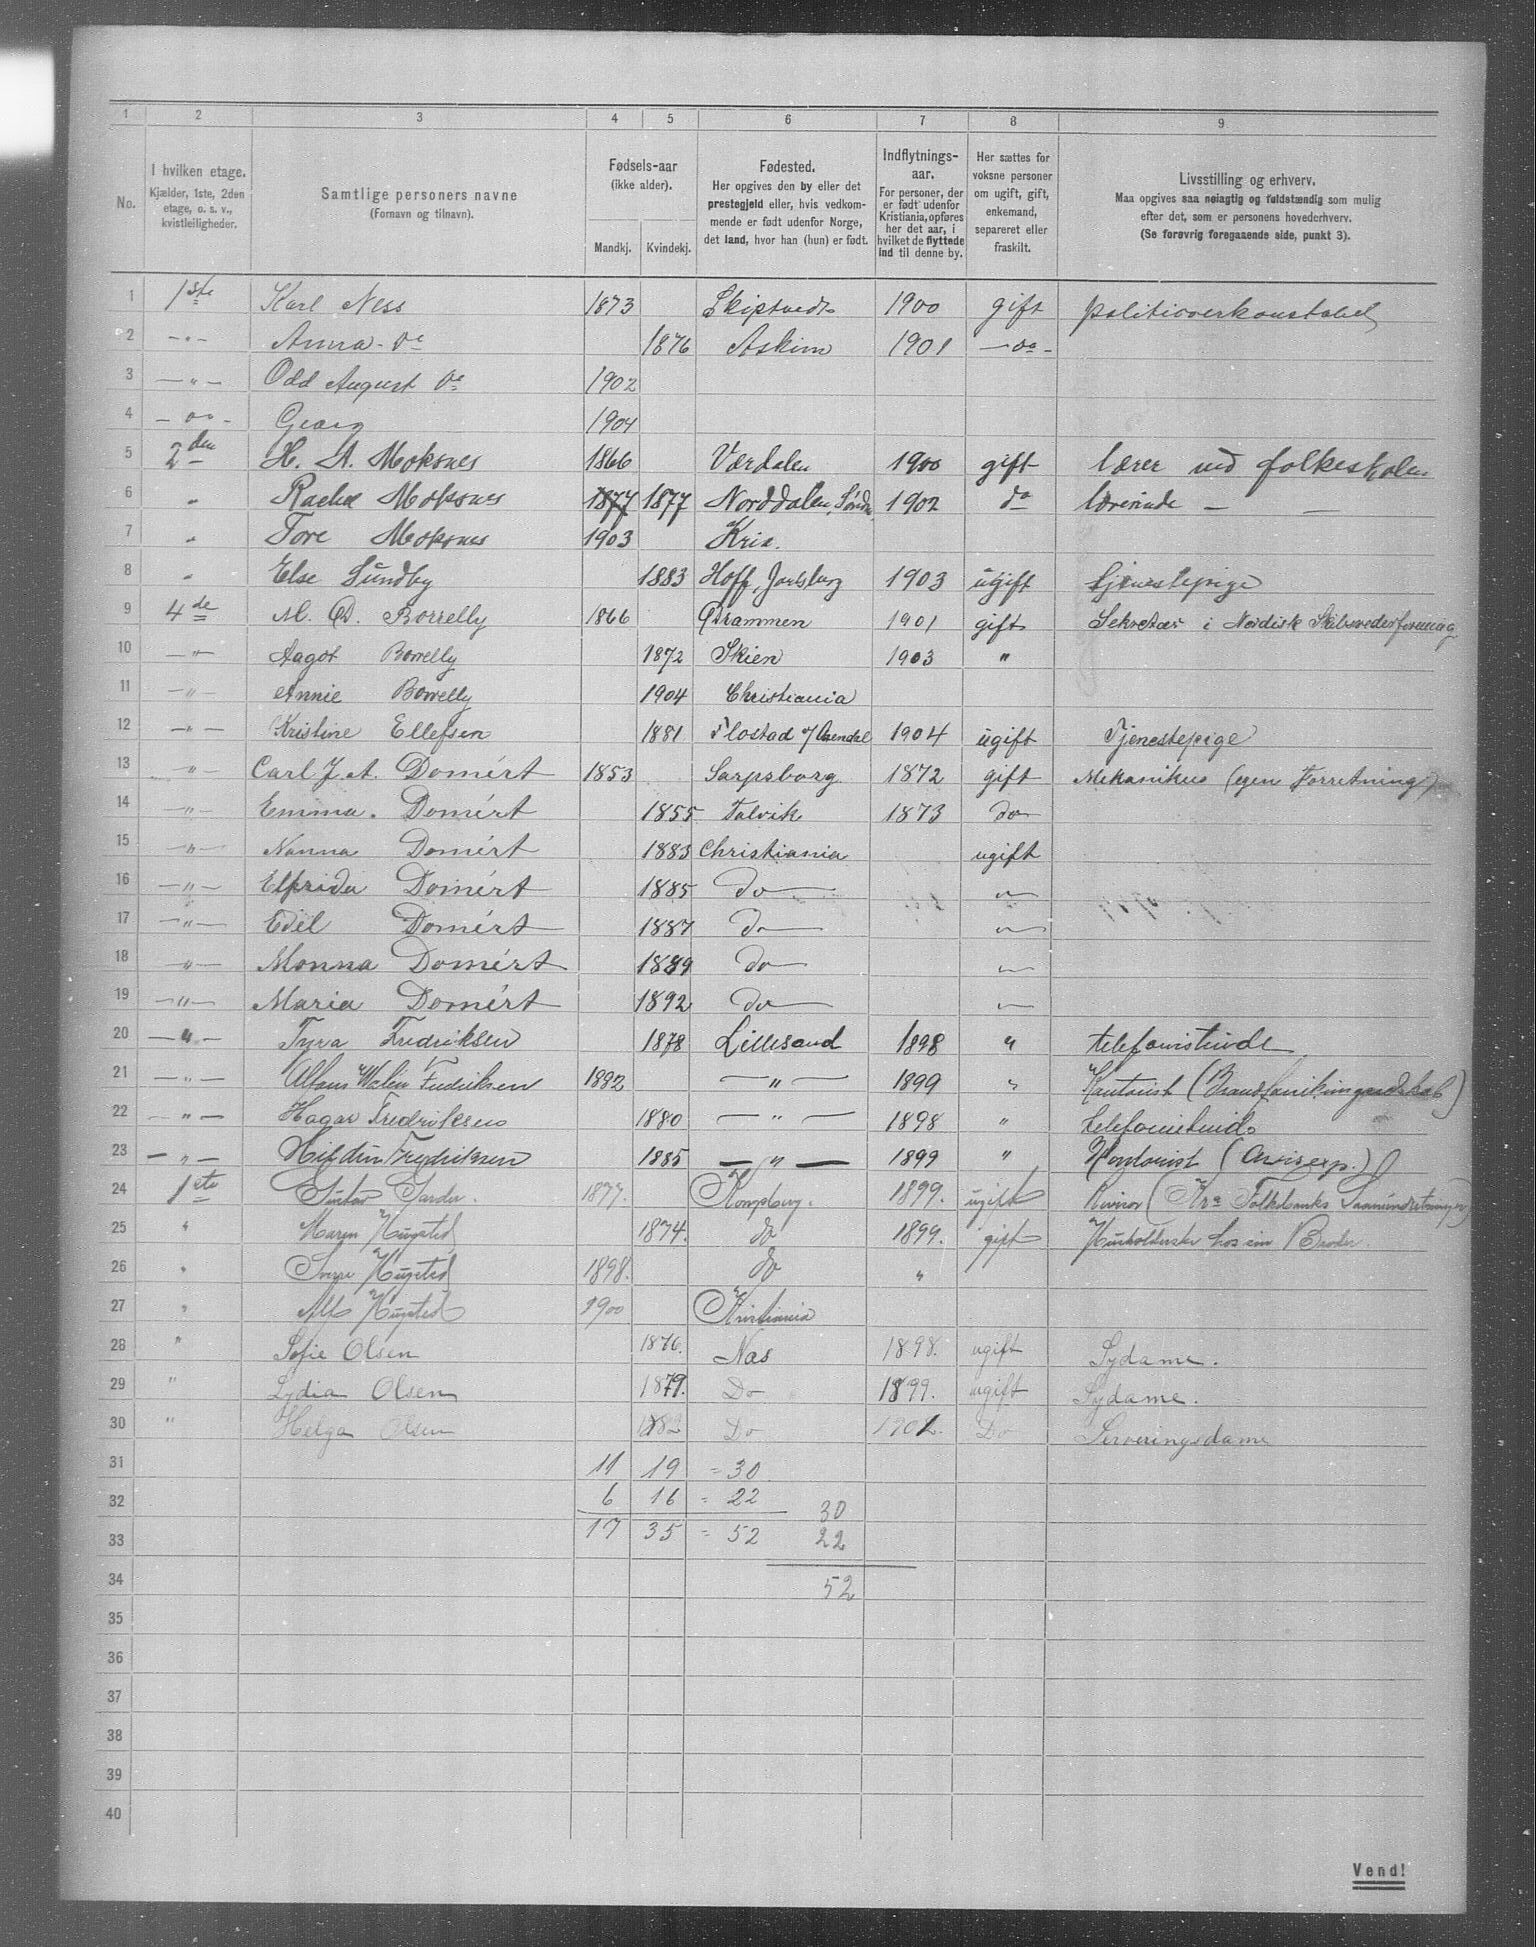 1 2 3 4 5 6 7 8 9
No.
I hvilken etage.
Kjælder, 1ste, 2den
etage, o. s. v.,
kvistleiligheder.
Samtlige personers navne
(Fornavn og tilnavn).
Fødsels-aar
(ikke alder).
Mandkj. Kvindekj.
Fødested.
Her opgives den by eller det
prestegjeld eller, hvis vedkom-
mende er født udenfor Norge,
det land, hvor han (hun) er født.
Indflytnings-
aar.
For personer, der
er født udenfor
Kristiania, opføres
her det aar, i
hvilket de flyttede
ind til denne by.
Her sættes for
voksne personer
om ugift, gift,
enkemand,
separeret eller
fraskilt.
Livsstilling og erhverv.
Maa opgives saa nøiagtig og fuldstændig som mulig
efter det, som er personens hovederhverv.
(Se forøvrig foregaaende side, punkt 3).
1 1ste Karl Ness 1873 Skiptvedt 1900 gift politioverkonstabel
2 -"- Anna do 1876 Askim 1901 - do -
3 -"- Odd August do 1902
4 - do - Georg 1904
5 2den H. A. Moksnes 1866 Værdalen 1900 gift lærer ved folkeskolen
6 " Rachel Moksnes 1877 1877 Norddalen, Søndm. 1902 do lærerinde - -
7 " Tore Moksnes 1903 Kria.
8 " Else Sundby 1883 Hoff, Jarlsberg 1903 ugift tjenestepige
9 4de M. D. Borrelly 1866 Drammen 1901 gift Sekretær i Nordisk Skibsrederforening
10 -"- Aagot Borrelly 1872 Skien 1903 "
11 -"- Annie Borrelly 1904 Christiania
12 -"- Kristine Ellefsen 1881 Flostad v/ Arendal 1904 ugift Tjenestepige
13 -"- Carl J. A. Domért 1853 Sarpsborg 1872 gift Mekanikus (egen Forretning)
14 -"- Emma. Domért 1855 Talvik 1873 do
15 -"- Nanna Domért 1883 Christiania ugift
16 -"- Elfrida Domért 1885 do -"-
17 -"- Edel Domért 1887 do -"-
18 -"- Monna Domért 1889 do -"-
19 -"- Maria Domért 1892 do -"-
20 -"- Tyra Fredriksen 1878 Lillesand 1898 " telefonistinde
21 -"- Fredriksen 1882 -"- 1899 " Kontorist
22 -"- Hagar Fredriksen 1880 -"- 1898 " telefonistinde
23 -"- Fredriksen 1885 -"- 1899 " Kontorist (Avisexp.)
24 1ste 1877. Kongsberg. 1899. ugift Revisor (Kra Folkebanks
25 " Maren Hugsted 1874. do 1899. gift Husholderske hos sin Broder.
26 " Hugsted 1898. do "
27 " Alf Hugsted 1900 Kristiania
28 " Sofie Olsen 1876. Nas 1898. ugift Sydame.
29 " Lydia Olsen 1879. Do 1899. ugift Sydame.
30 " Helga Olsen 1882 Do 1902. Do Serveringsdame
31 11 19 = 30
32 6 16 = 22 30
33 17 35 = 52 22
34 52
35
36
37
38
39
40
Vend!